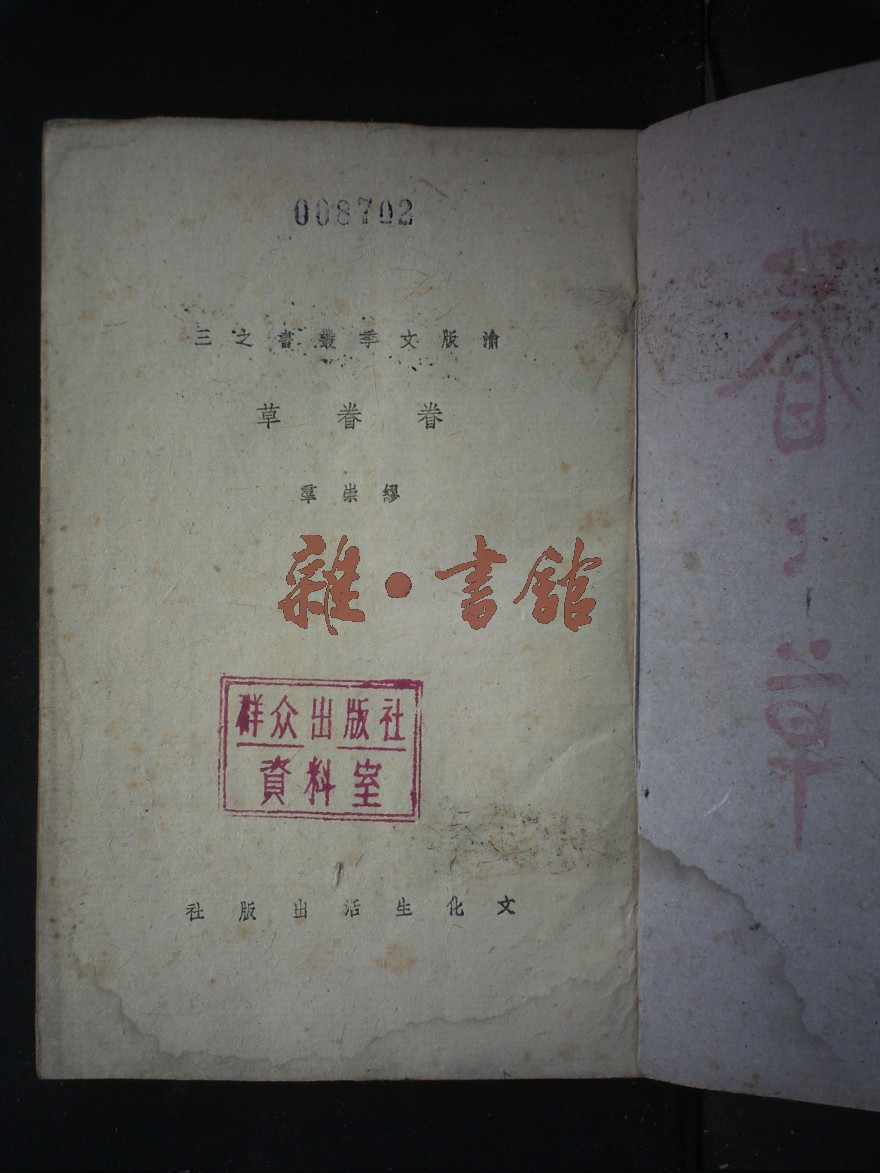 008702
渝版文季叢書之三
眷眷草
繆崇羣
雜·書館
群众出版社
資料室
文化生活出版社
眷 草